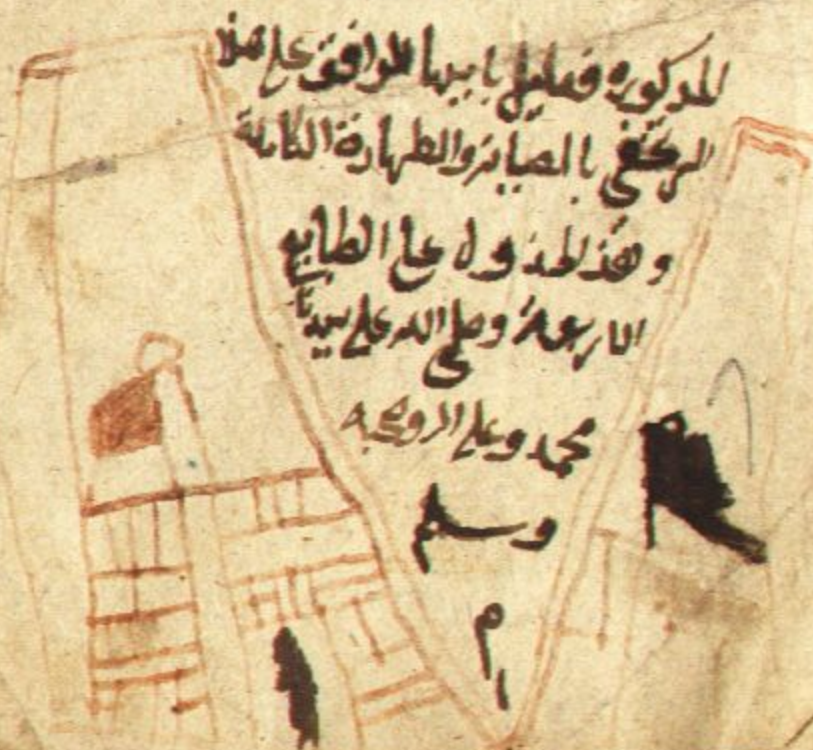 المذكوره فعليك بابيها الموافق على هذا
المرتقى بالصيانة والطهارة الكاملة
وهذ لجذول على الطبايع
الاربعة وصلى الله على سيدنا
محمد وعلى اله وصحبه
وسلم
م